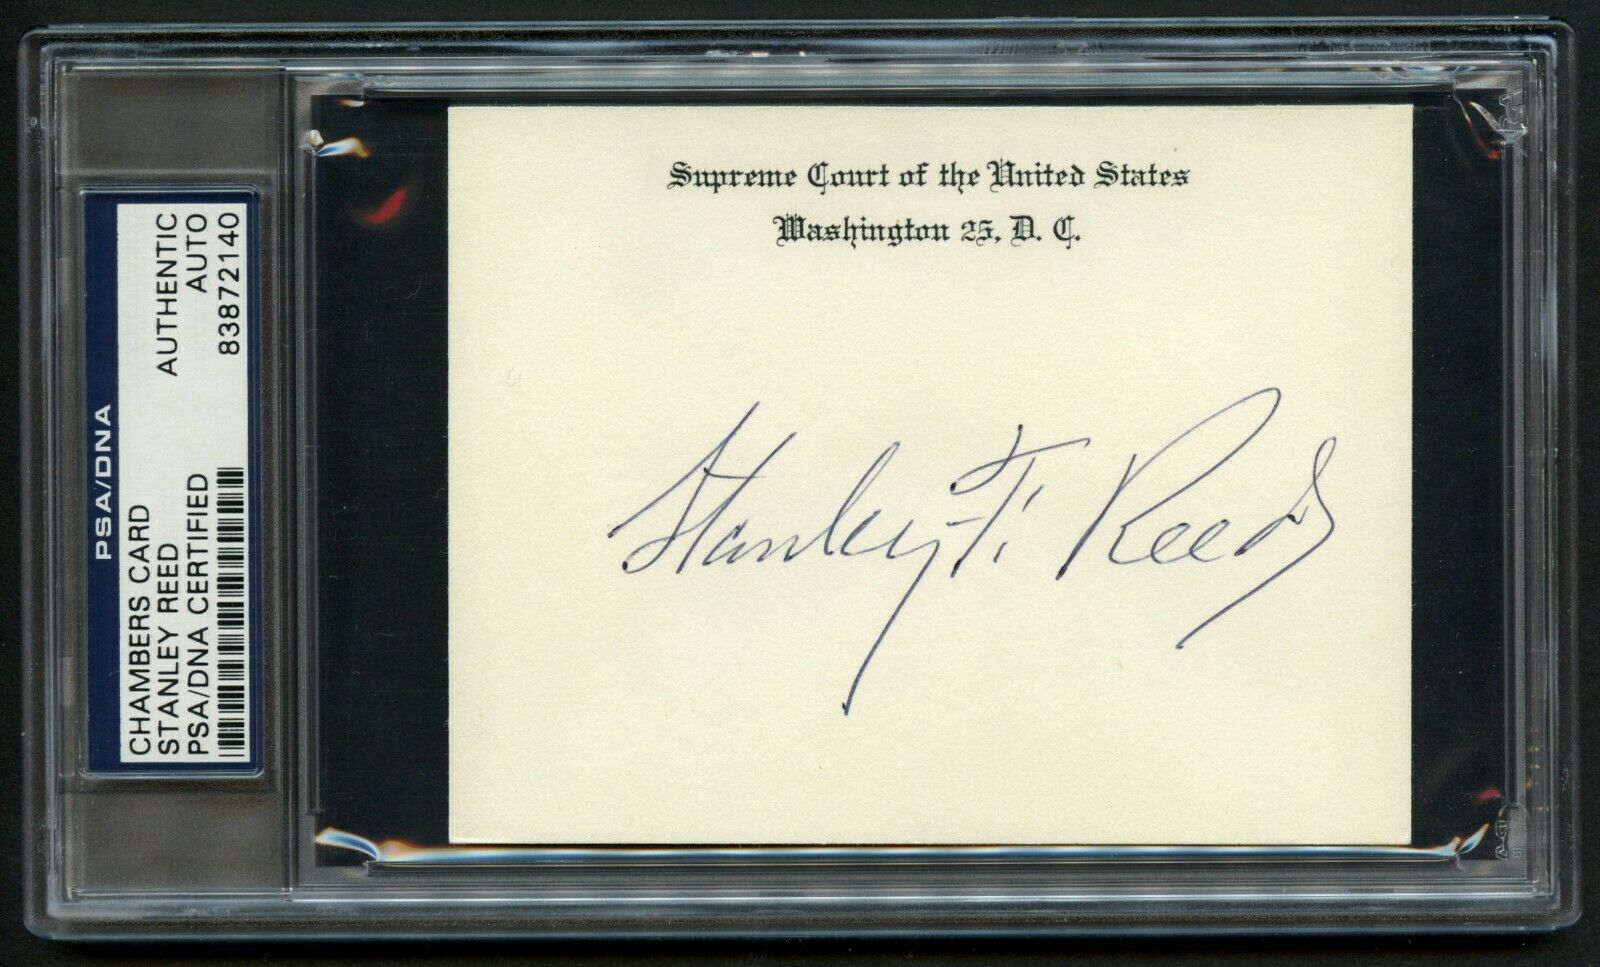 PSA/DNA
CHAMBERS CARD
STANLEY REED
PSA/DNA CERTIFIED
AUTHENTIC
AUTO
83872140
Supreme Court of the United States
Washington 25, D. C.
Stanley F. Reed